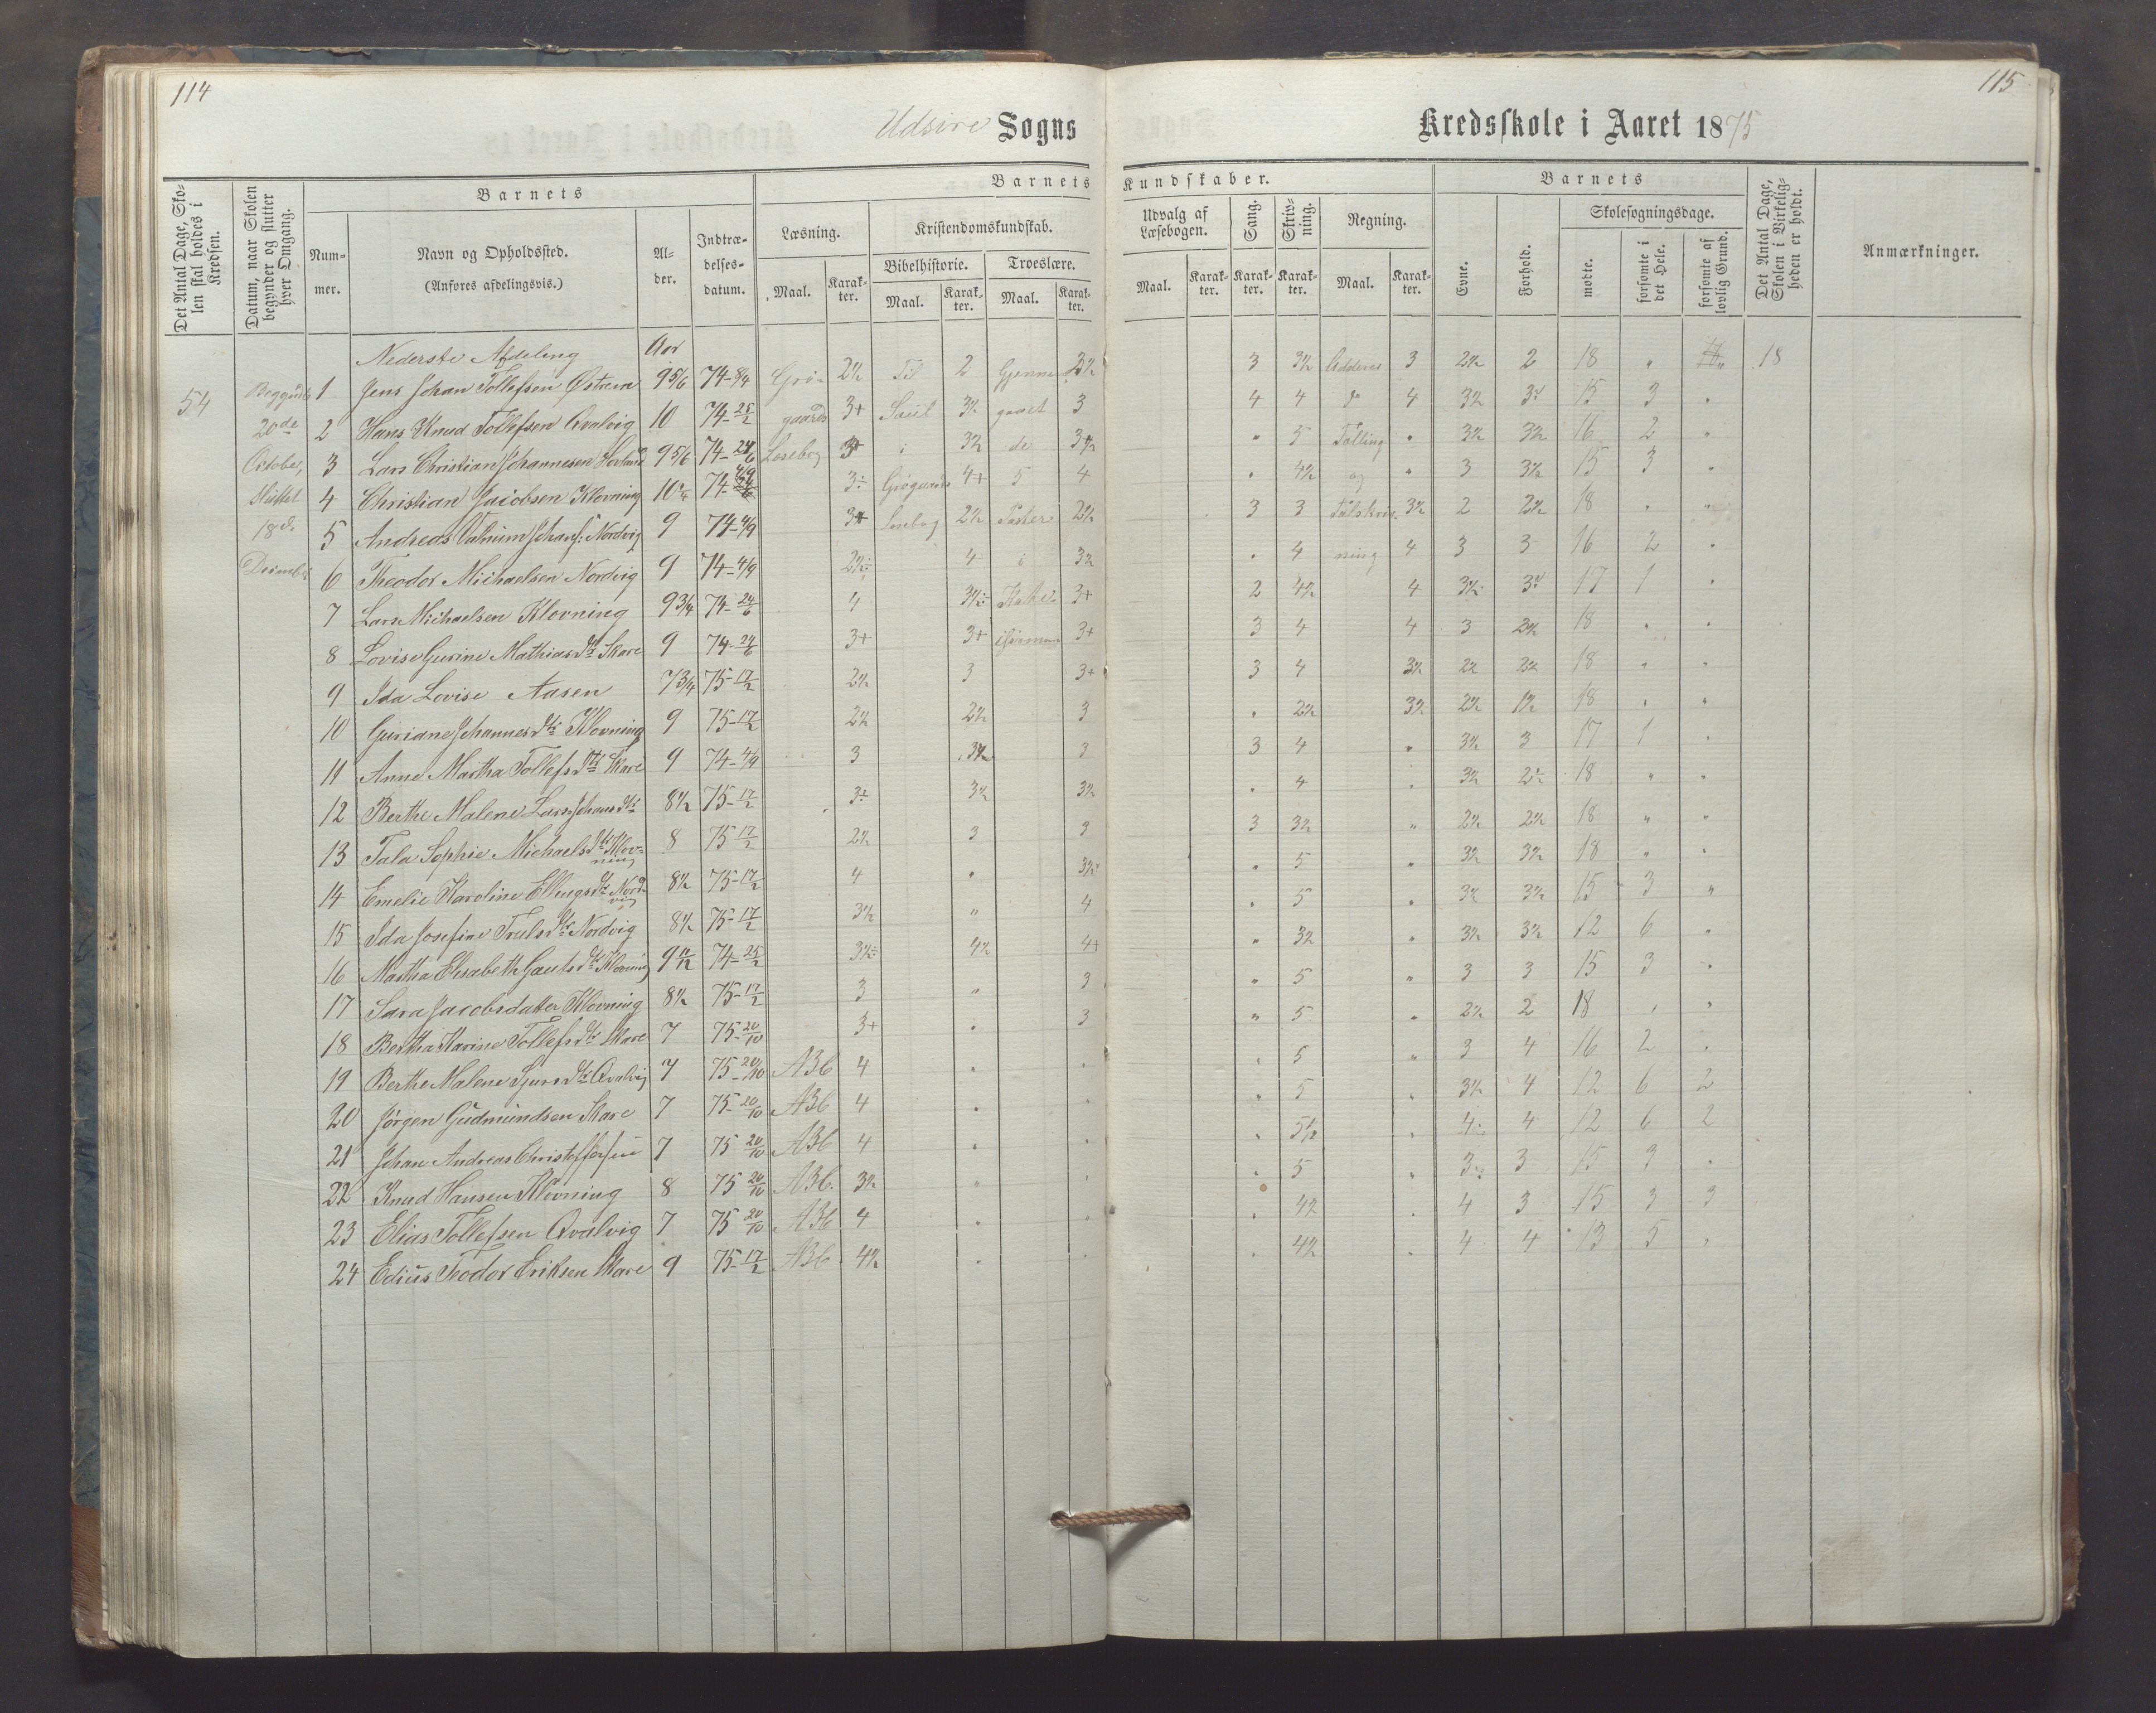 114
115
Udsire Sogns
Kredsskole i Aaret 1875
Det Antal Dage, Skolen skal holdes i Kredsen.
Datum, naar Skolen begynder og slutter hver Omgang.
Barnets
Nummer.
Navn og Opholdssted.
(Anføres afdelingsvis.)
Alder.
Indtrædelsesdatum.
Barnets Kundskaber.
Læsning.
Kristendomskundskab.
Bibelhistorie.
Troeslære.
Maal. Karakter. Maal. Karakter. Maal. Karakter.
Udvalg af Læsebogen.
Sang.
Skrivning.
Regning.
Maal. Karakter. Karakter. Karakter. Maal. Karakter.
Barnets
Evne.
Forhold.
Skolesøgningsdage.
mødte.
forsømte i det Hele.
forsømte af lovlig Grund.
Det Antal Dage, Skolen i Virkeligheden er holdt.
Anmærkninger.
Nederste Afdeling Aar
54 1 Jens Johan Tollefsen Østrem 9 5/6 74-8/4 2½ Til 2 3 3½ Adderer 3 2½ 2 18 " 18
20de 2 Hans Knud Tollefsen Qvalvig 10 74-25/2 gaards 3+ Saul 3½ 3 4 4 4 15 3 "
October, 3 Lars Christian Johannesen 9 5/6 74-24/6 Læsebog i 3½ de " 5 Tælling " 3½ 3½ 16 2 "
Sluttet 4 Christian Jacobsen Klovning 4+ 5 4 " 4½ og " 3 3½ 15 3 "
18de 5 Nordvig 9 74-4/9 Læsebog 2½ Parter 2½ 3 3 3½ 2 2½ 18 " "
6 Theodor Michaelsen Nordvig 9 74-4/9 4 i 3½ " 4 ning 4 3 3 16 2 "
7 Lars Michaelsen Klovning 9 3/4 74-24/6 4 3+ 2 4½ 4 17 1 "
8 Lovise Gurine Mathiasdtr Skare 9 74-24/6 3+ 3+ 3+ 3 4 4 3 2½ 18 " "
9 Ida Lovise Aasen 7 3/4 75-17/2 2½ 3 3+ 3 4 3½ 2½ 2½ 18 " "
10 Guriane Johannesdtr Klovning 9 75-17/2 2½ 2½ 3 " 2½ 3½ 2½ 1½ 18 " "
11 Anne Martha Tollefsdtr Skare 9 74-4/9 3 3½ 3 3 4 " 3½ 3 17 1 "
12 Berthe Malene Lars Johansdtr 8½ 75-17/2 3+ 3½ 3½ " 4 " 3½ 18 " "
13 Tala Sophie Michaelsdtr Klovning 8 75 17/2 2½ 3 3 3 3½ " 2½ 2½ 18 " "
14 Emelie Karoline Ellingsdtr Nordvig 8½ 75-17/2 4 " " 5 " 3½ 3½ 18 " "
15 Ida Josefine Trulsdtr Nordvig 8½ 75-17/2 3½ " 4 " 5 " 3½ 3½ 15 3 "
16 Martha Elisabeth Gautsdtr Klovning 74-25/2 4½ 4+ " 3½ " 3½ 3½ 12 6 "
17 Sara Jacobsdatter Klovning 8½ 75-17/2 3 " 3 " 5 " 3 3 15 3 "
18 Bertha Karine Tollefsdtr Skare 7 75-20/10 3+ " 3 " 5 " 2½ 2 18 " "
19 Berthe Malene Sjursdtr Qvalvig 7 75-20/10 ABC 4 " " " 5 " 3 4 16 2 "
20 Jørgen Gudmundsen Skare 7 75-20/10 ABC 4 " " " 5 " 3½ 4 12 6 2
21 Johan Andreas Christoffersen 7 75 20/10 ABC 4 " " " 5½ " 4 4 12 6 2
22 Knud Hansen Klovning 8 75 20/10 ABC. 3½ " " " 5 " 3 15 3 "
23 Elias Tollefsen Qvalvig 7 75 20/10 ABC 4 " " " 4½ " 4 3 15 3 3
24 Edius Teodor Eriksen Skare 9 75-17/2 ABC 4½ " " " 4½ " 4 4 13 5 "